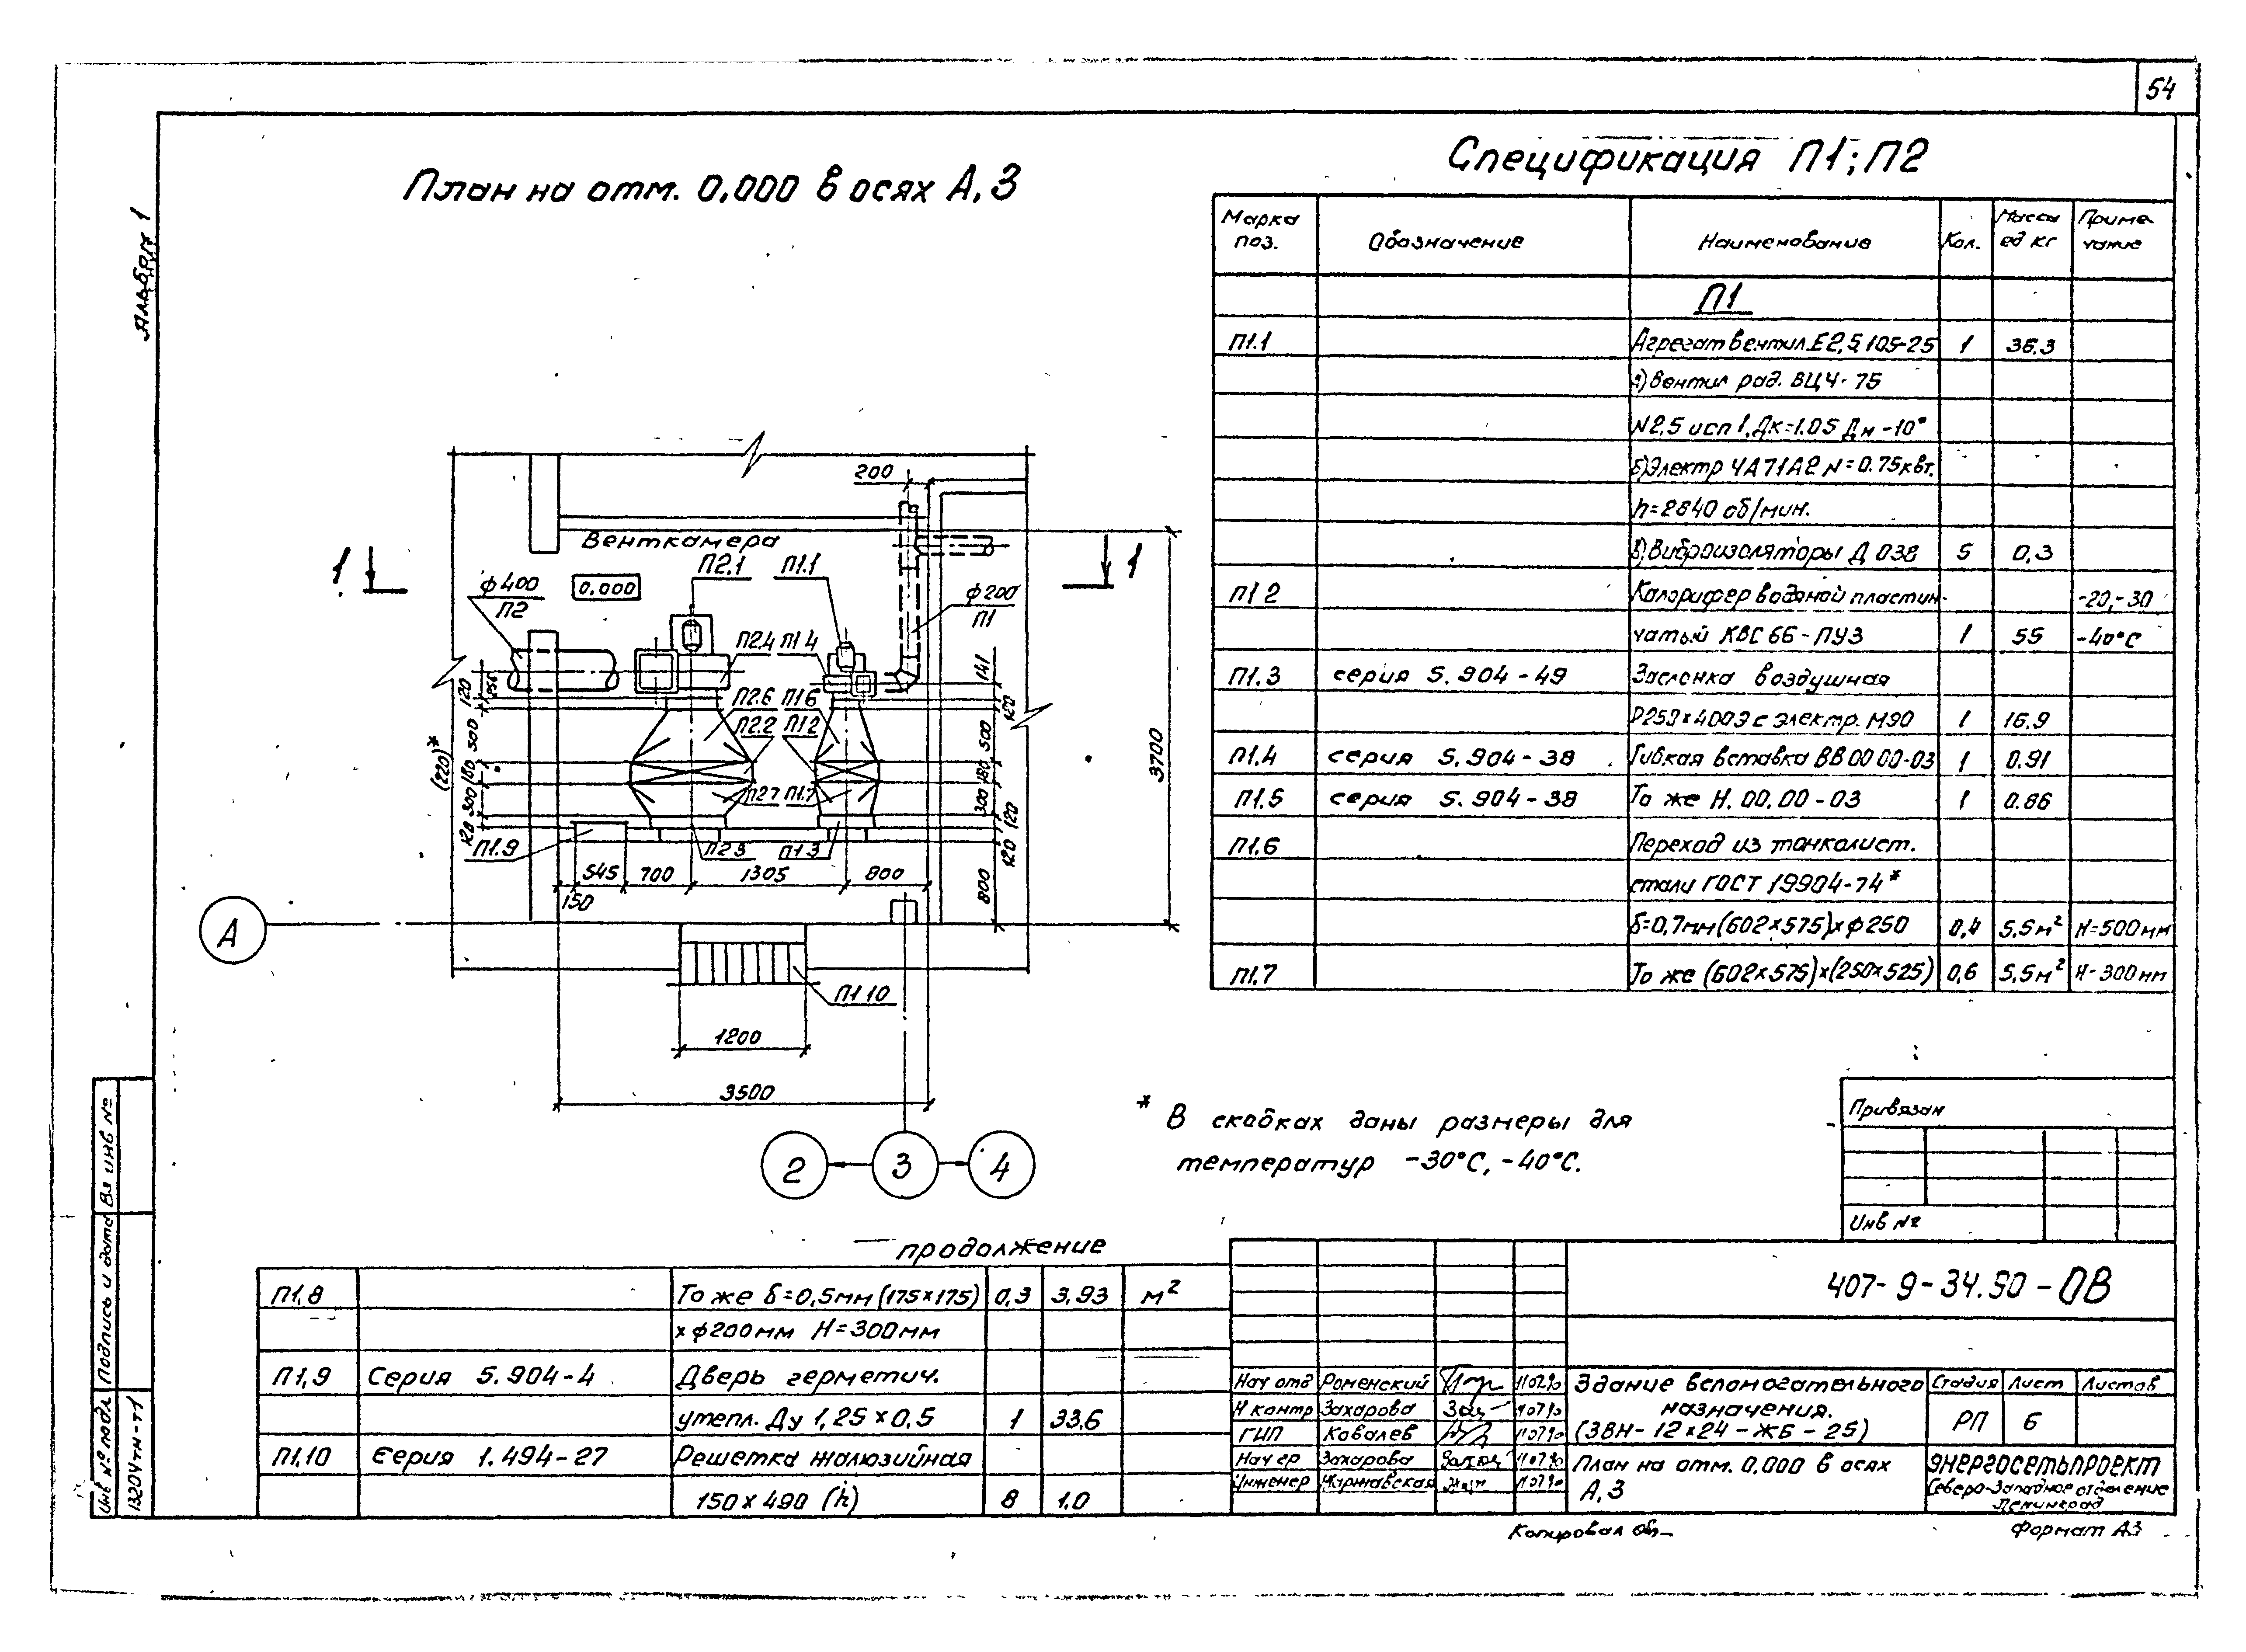 54
Альбом 1
План на отм. 0,000 в осях А, 3
Спецификация П1; П2
Марка поз. Обозначение Наименование Кол. Масса ед кг Примечание
П1
П1.1 Агрегат вентил. Е2,5.105-25 1 36.3
а) Вентил рад. ВЦ4-75
N2,5 исп 1, Дк=1.05 Дн -10°
б) Электр 4А71А2 N=0.75квт.
n=2840 об/мин.
в) Виброизоляторы Д 038 5 0,3
П1 2 Калорифер водяной пластин- -20,-30
чатый КВС 6Б-ПУЗ 1 55 -40°С
П1.3 серия 5.904-49 Заслонка воздушная
Р250х400Э с электр. МЭО 1 16.9
П1.4 серия 5.904-38 Гибкая вставка ВВ 00 00-03 1 0.91
П1.5 серия 5.904-38 То же Н.00.00-03 1 0.86
П1.6 Переход из тонколист.
стали ГОСТ 19904-74*
δ=0,7мм (602х575)хф250 0,4 5.5м² Н=500мм
П1.7 То же (602х575)х(250х525) 0,6 5,5м² Н-300мм
200
Венткамера
1 1
П2.1 П1.1
ф400
П2
0,000
ф200
П1
П2.4 П1 4
П2.6 П1 6
П2.2 П1 2
П2 7 П1.7
П2 3 П1.3
П1.9
120
256
500
(220)*
180
300
120
141
120
500
180
300
120
120
800
3700
545 700 1305 800
150
А
П1 10
1200
3500
2 3 4
* В скобках даны размеры для
температур -30°С, -40°С.
Привязан
Инв №
продолжение
П1,8 То же δ=0,5мм (175х175) 0,3 3,93 м²
хф200мм Н=300мм
П1,9 Серия 5.904-4 Дверь герметич.
утепл. Ду 1,25х0,5 1 33,6
П1,10 Серия 1.494-27 Решетка жалюзийная
150х490 (h) 8 1.0
407-9-34.90-ОВ
Нач отд Роменский
Н контр Захарова
ГИП Ковалев
Нач гр Захарова
Инженер
Здание вспомогательного
назначения.
(ЗВН-12х24-ЖБ-25)
Стадия Лист Листов
РП 6
План на отм. 0,000 в осях
А, 3
ЭНЕРГОСЕТЬПРОЕКТ
Северо-Западное отделение
Ленинград
Копировал
Формат А3
Вз инв №
Подпись и дата
Инв № подл
13204тм-т1